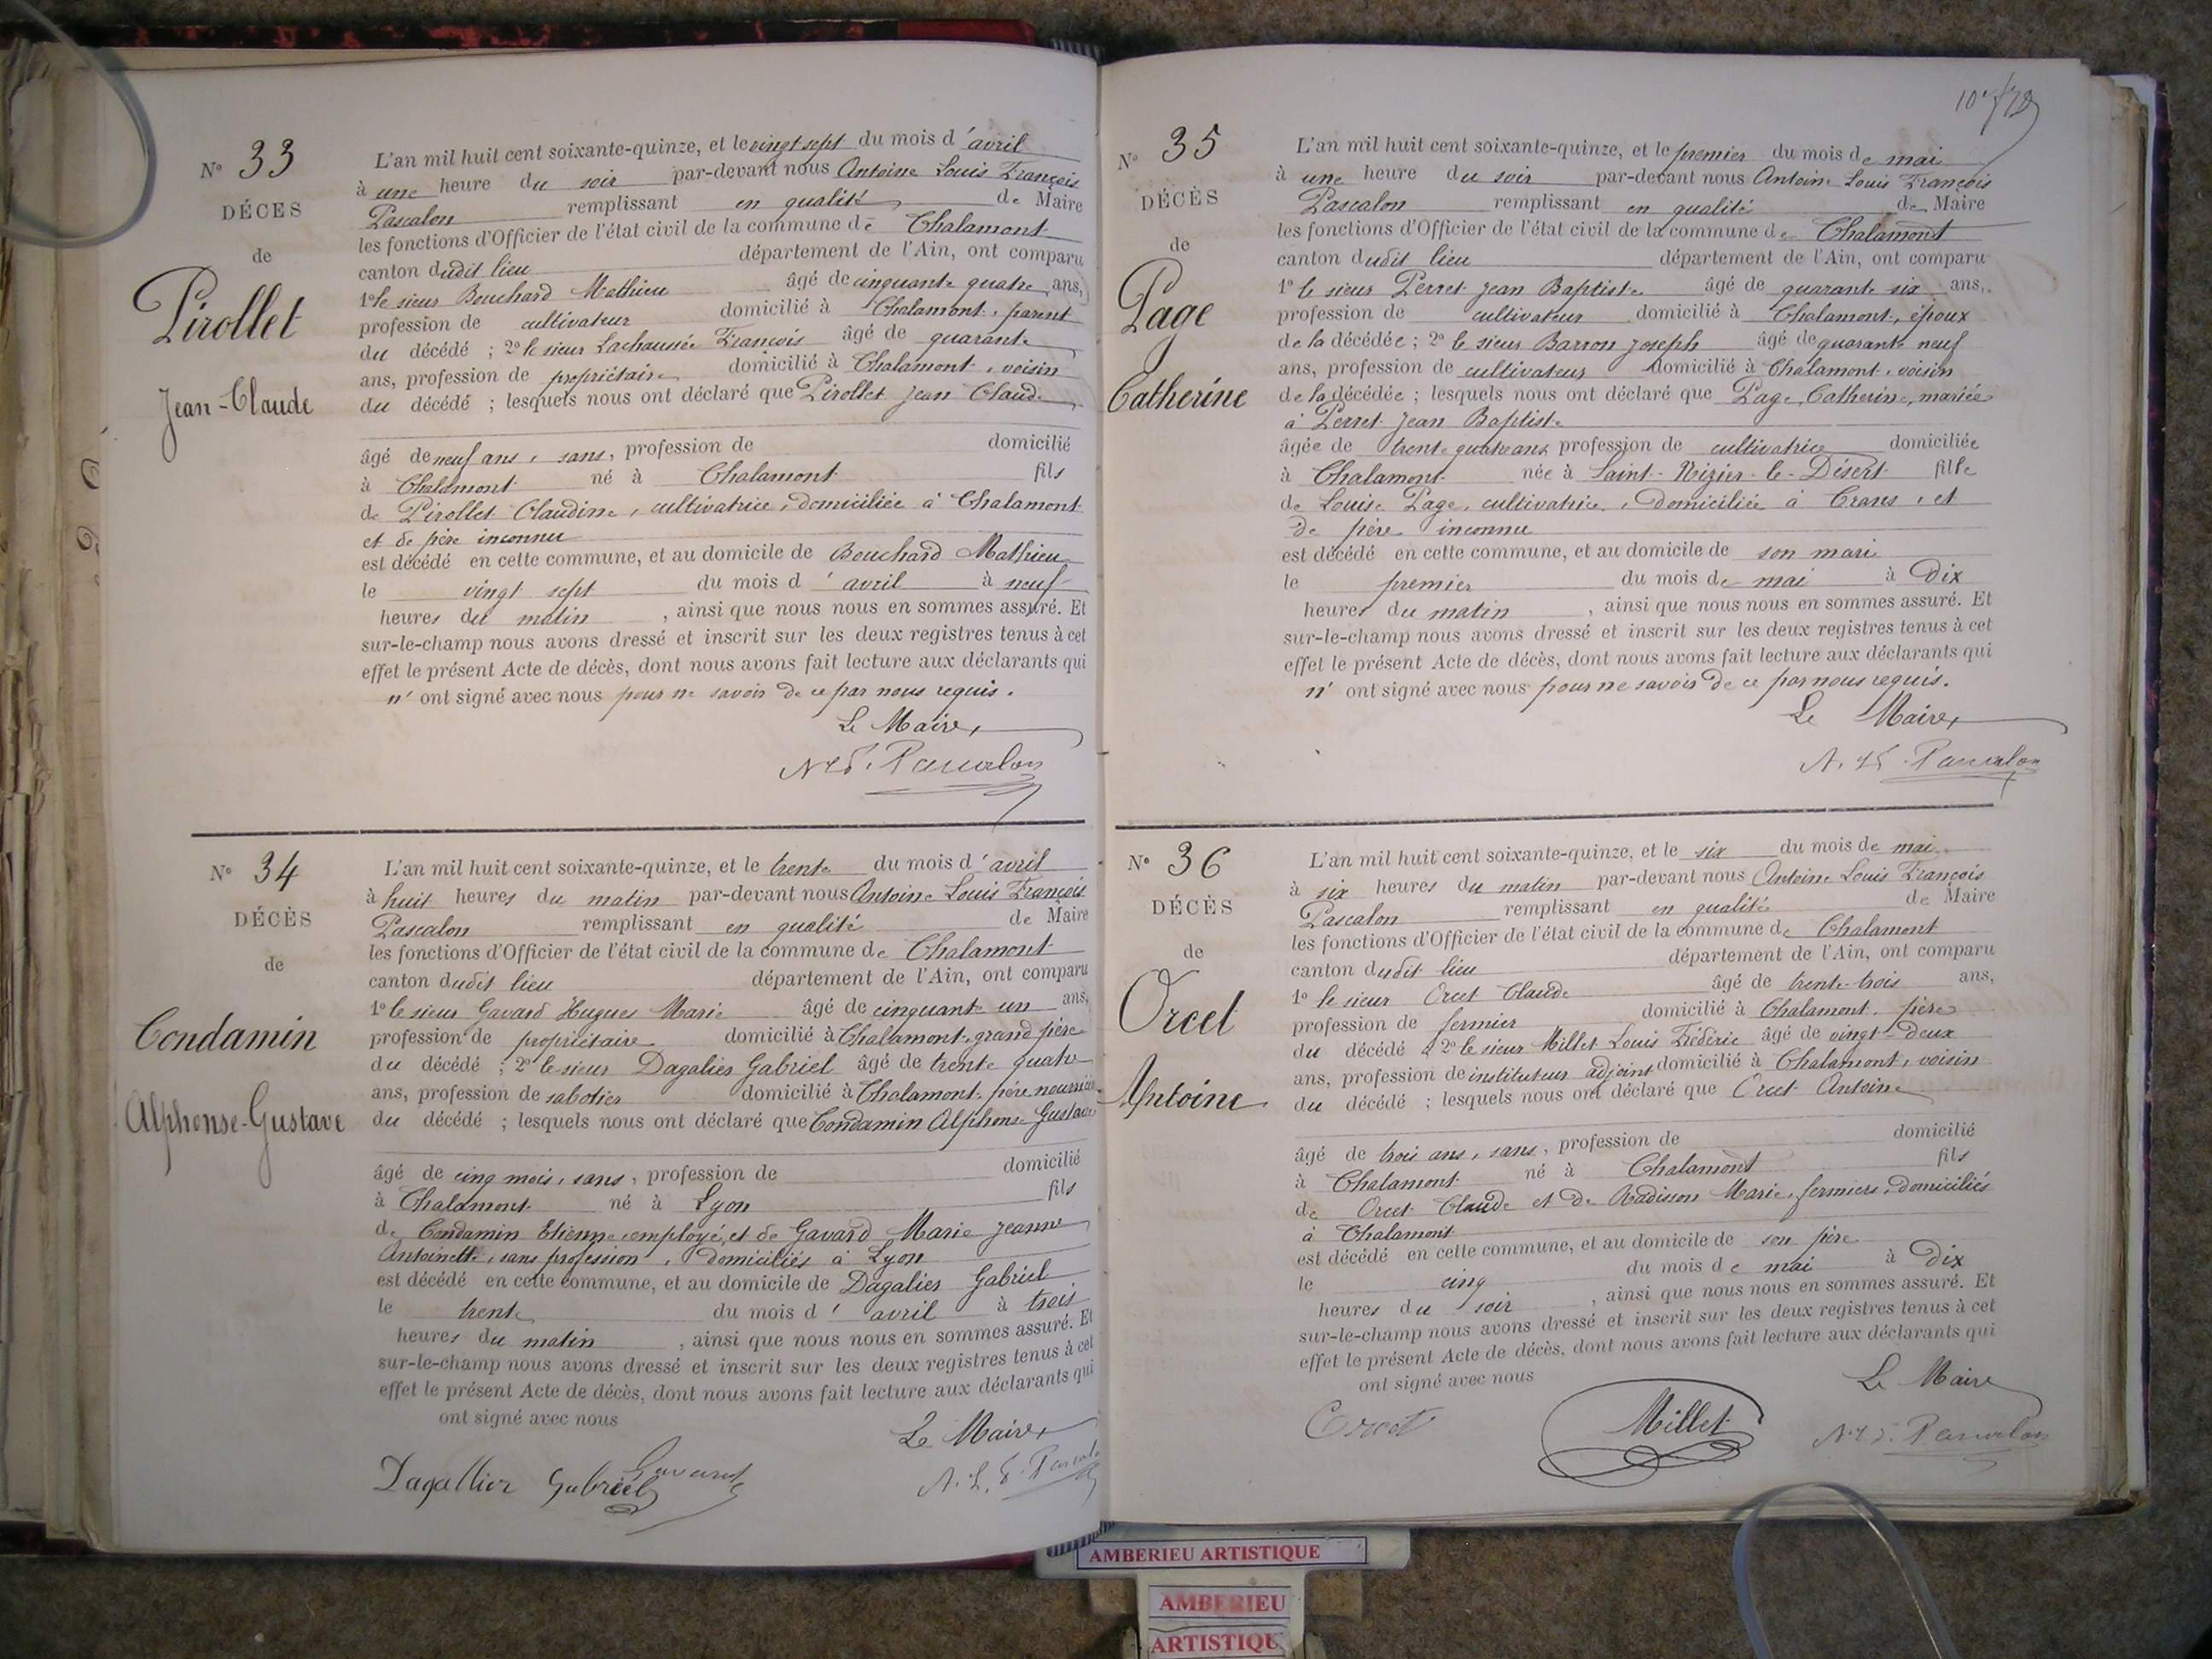 N° 33
DÉCES
de
Pirollet
Jean-Claude
L'an mil huit cent soixante-quinze, et le vingt sept du mois d'avril
à une heure du soir par-devant nous Antoine Louis François
Pascalon remplissant en qualité de Maire
les fonctions d'Officier de l'état civil de la commune de Chalamont
canton dudit lieu département de l'Ain, ont comparu
1° le sieur Bouchard Mathieu âgé de cinquante quatre ans,
profession de cultivateur domicilié à Chalamont, parent
du décédé ; 2° le sieur Lachaussée François âgé de quarante
ans, profession de propriétaire domicilié à Chalamont, voisin
du décédé ; lesquels nous ont déclaré que Pirollet Jean Claude
âgé de neuf ans, sans, profession de domicilié
à Chalamont né à Chalamont fils
de Pirollet Claudine, cultivatrice, domiciliée à Chalamont
et de père inconnu
est décédé en cette commune, et au domicile de Bouchard Mathieu
le vingt sept du mois d'avril à neuf
heures du matin, ainsi que nous nous en sommes assuré. Et
sur-le-champ nous avons dressé et inscrit sur les deux registres tenus à cet
effet le présent Acte de décès, dont nous avons fait lecture aux déclarants qui
n'ont signé avec nous pour ne savoir de ce par nous requis.
Le Maire,
Pascalon
N° 34
DÉCÈS
de
Condamin
Alphonse-Gustave
L'an mil huit cent soixante-quinze, et le trente du mois d'avril
à huit heures du matin par-devant nous Antoine Louis François
Pascalon remplissant en qualité de Maire
les fonctions d'Officier de l'état civil de la commune de Chalamont
canton dudit lieu département de l'Ain, ont comparu
1° le sieur Gavard Hugues Marie âgé de cinquante un ans,
profession de propriétaire domicilié à Chalamont, grand père
du décédé ; 2° le sieur Dagalier Gabriel âgé de trente quatre
ans, profession de sabotier domicilié à Chalamont, père nourricier
du décédé ; lesquels nous ont déclaré que Condamin Alphonse Gustave
âgé de cinq mois, sans, profession de domicilié
à Chalamont né à Lyon fils
de Condamin Etienne employé, et de Gavard Marie Jeanne
Antoinette, sans profession, domiciliés à Lyon
est décédé en cette commune, et au domicile de Dagalier Gabriel
le trente du mois d'avril à trois
heures du matin, ainsi que nous nous en sommes assuré. Et
sur-le-champ nous avons dressé et inscrit sur les deux registres tenus à cet
effet le présent Acte de décès, dont nous avons fait lecture aux déclarants qui
ont signé avec nous
Le Maire,
Dagallier Gabriel Gavard A. L. F. Pascalon
N° 35
DÉCÈS
de
Page
Catherine
L'an mil huit cent soixante-quinze, et le premier du mois de mai
à une heure du soir par-devant nous Antoine Louis François
Pascalon remplissant en qualité de Maire
les fonctions d'Officier de l'état civil de la commune de Chalamont
canton dudit lieu département de l'Ain, ont comparu
1° le sieur Perret Jean Baptiste âgé de quarante six ans,
profession de cultivateur domicilié à Chalamont, époux
de la décédée ; 2° le sieur Barron Joseph âgé de quarante neuf
ans, profession de cultivateur domicilié à Chalamont, voisin
de la décédée ; lesquels nous ont déclaré que Page Catherine, mariée
à Perret Jean Baptiste
âgée de trente quatre ans profession de cultivatrice domiciliée
à Chalamont née à Saint-Nizier-le-Désert fille
de Louise Page, cultivatrice, domiciliée à Crans, et
de père inconnu
est décédé en cette commune, et au domicile de son mari
le premier du mois de mai à dix
heures du matin, ainsi que nous nous en sommes assuré. Et
sur-le-champ nous avons dressé et inscrit sur les deux registres tenus à cet
effet le présent Acte de décès, dont nous avons fait lecture aux déclarants qui
n'ont signé avec nous pour ne savoir de ce par nous requis.
Le Maire,
Pascalon
N° 36
DÉCÈS
de
Orcet
Antoine
L'an mil huit cent soixante-quinze, et le six du mois de mai
à six heures du matin par-devant nous Antoine Louis François
Pascalon remplissant en qualité de Maire
les fonctions d'Officier de l'état civil de la commune de Chalamont
canton dudit lieu département de l'Ain, ont comparu
1° le sieur Orcet Claude âgé de trente-trois ans,
profession de fermier domicilié à Chalamont, père
du décédé ; 2° le sieur Millet Louis Frédéric âgé de vingt-deux
ans, profession de instituteur adjoint domicilié à Chalamont, voisin
du décédé ; lesquels nous ont déclaré que Orcet Antoine
âgé de trois ans, sans, profession de domicilié
à Chalamont né à Chalamont fils
de Orcet Claude et de Radisson Marie, fermiers, domiciliés
à Chalamont
est décédé en cette commune, et au domicile de son père
le cinq du mois de mai à dix
heures du soir, ainsi que nous nous en sommes assuré. Et
sur-le-champ nous avons dressé et inscrit sur les deux registres tenus à cet
effet le présent Acte de décès, dont nous avons fait lecture aux déclarants qui
ont signé avec nous
Le Maire
Orcet Millet Pascalon
AMBERIEU ARTISTIQUE
AMBERIEU
ARTISTIQU